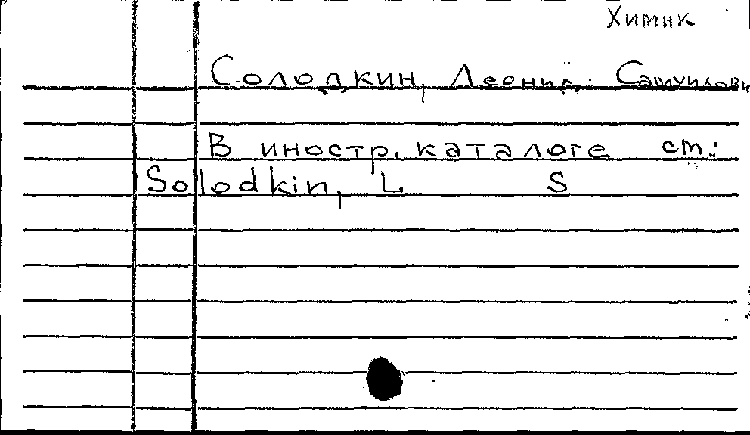 Химик
Солодкин, Леонид Самуилови
В иностр. каталоге см:
Solodkin, L S